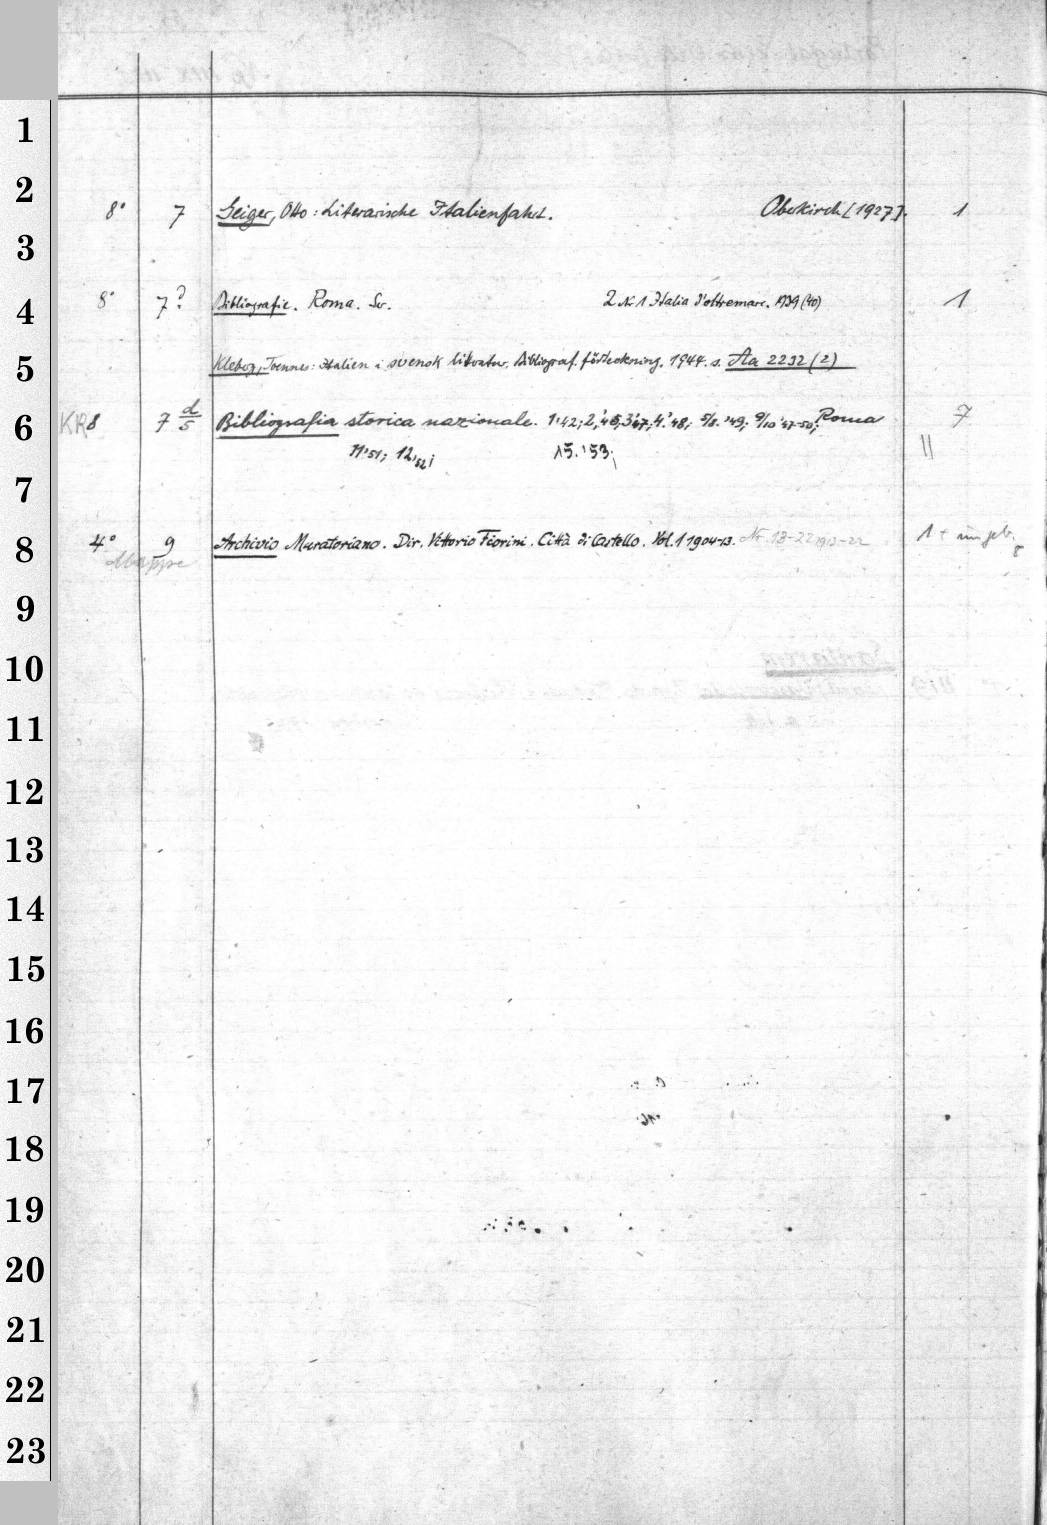 1
2
8° 7 Geiger, Otto: Literarische Italienfahrt. Oberkirch [1927]. 1
3
8° 7? Bibliografie. Roma. Ser. 2 N 1 Italia d'oltremare. 1939 (40) 1
4
5 Kleberg, Toennes: Italien i svensk litteratur. Bibliograf. förteckning. 1944. s. Aa 2232 (2)
6 KR 8 7 d/5 Bibliografia storica nazionale. 1.'42; 2,'45; 3'47; 4.'48; 5/8.'49; 9/10'47-50; Roma 7
11'51; 12,'52; 15.'53; ||
7
8 4° 9 Archivio Muratoriano. Dir. Vittorio Fiorini. Città di Castello. Vol. 1 1904-13. Nr. 13-22 1913-22 1 + ungeb.
Mappe
9
10
11
12
13
14
15
16
17
18
19
20
21
22
23